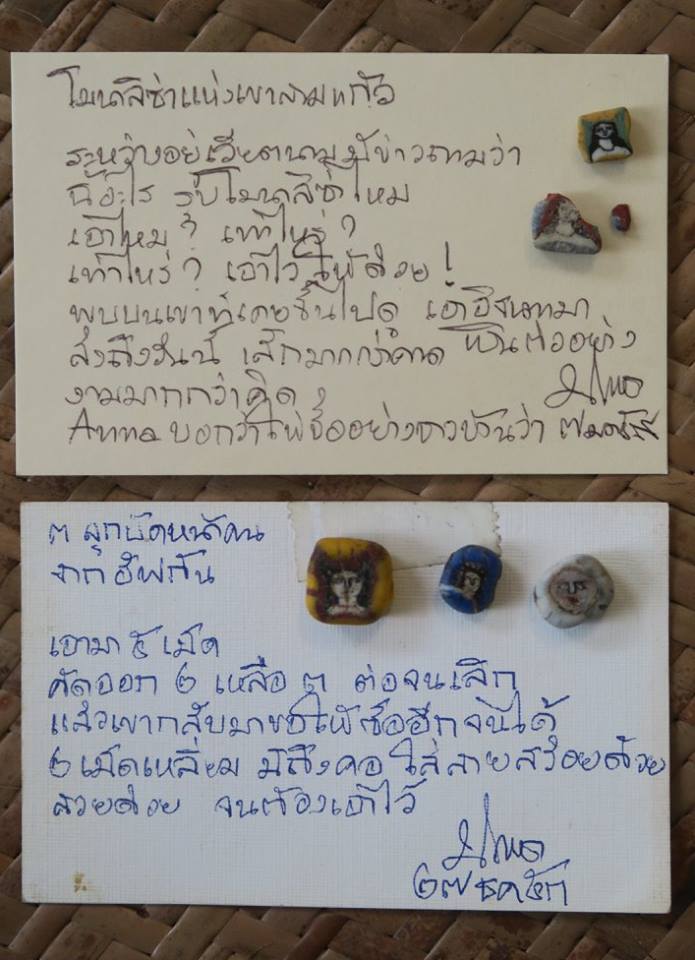 โมนาลิซ่าแห่งเขาสามแก้ว
ระหว่างอยู่เวียตนามมีข่าวถามว่า
นี่อะไร รูปโมนาลิซ่าไหม
เอาไหม ? เท่าไหร่ ?
เท่าไหร่ ? เอาไว้ให้ด้วย !
พบบนเขาที่เคยขึ้นไปดู
ส่งถึงวันนี้ เล็กมากกว่าคาด
งามมากกว่าคิด
Anna บอกว่าให้ซื้ออย่างชาวบ้านว่า
๓ ลูกปัดหน้าคน
จาก อีฟกัน
เอามา ๕ เม็ด
คัดออก ๒ เหลือ ๓ ต่อจนเลิก
แล้วเขากลับมาขอให้ซื้ออีกจนได้
๒ เม็ดเหลี่ยม มีถึงคอ ใส่สายสร้อยด้วย
สวยด้วย จนต้องเอาไว้